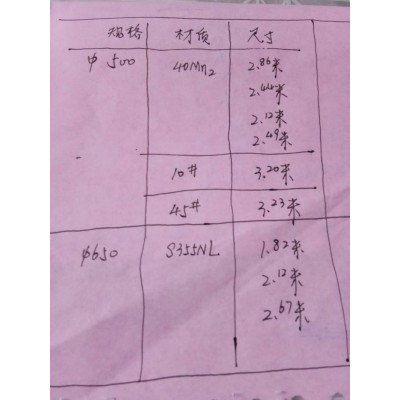 规格 材质 尺寸
φ500 40Mn2 2.86米
2.44米
2.12米
2.49米
10# 3.20米
45# 3.23米
φ650 S355NL 1.82米
2.12米
2.67米